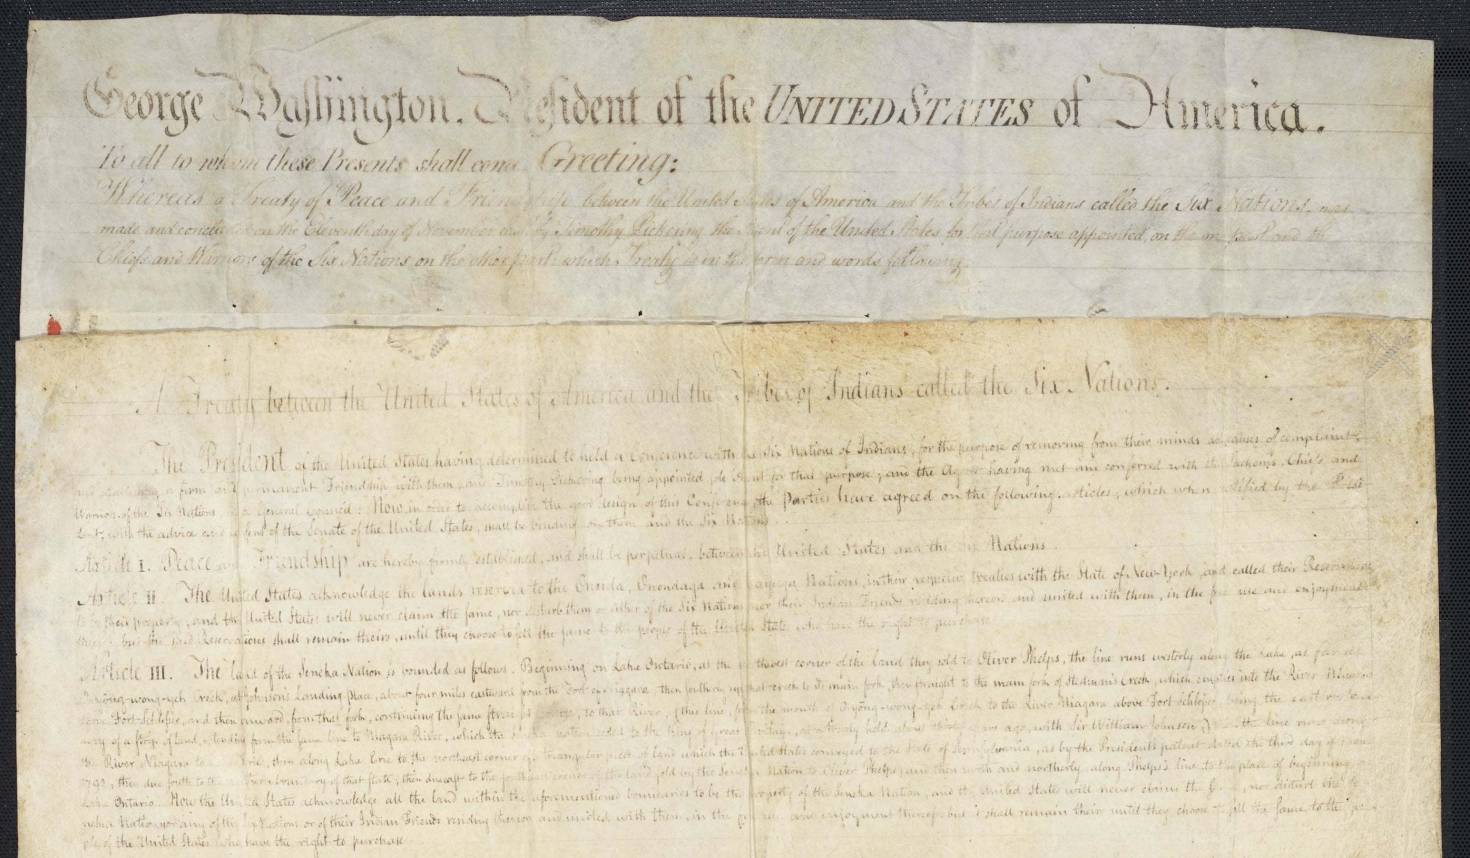 George Washington, President of the UNITED STATES of America.
To all to whom these Presents shall come Greeting:
Whereas a Treaty of Peace and Friendship between the United States of America and the Tribes of Indians called the Six Nations, was
made and concluded on the Eleventh day of November by Timothy Pickering the Agent of the United States for that purpose appointed, on the one part and the
Chiefs and Warriors of the Six Nations on the other part: which Treaty is in the form and words following.
A Treaty between the United States of America and the Tribes of Indians called the Six Nations.
The President of the United States having determined to hold a Conference with the Six Nations of Indians, for the purpose of removing from their minds all causes of complaint,
and establishing a firm and permanent Friendship with them; and Timothy Pickering being appointed sole Agent for that purpose; and the Agent having met and conferred with the Sachems, Chiefs and
Warriors of the Six Nations in a General Council: Now, in order to accomplish the good design of this Conference, the Parties have agreed on the following articles; which when ratified by the
with the advice and consent of the Senate of the United States, shall be binding on them and the Six Nations.
Article I. Peace and Friendship are hereby firmly established, and shall be perpetual, between the United States and the Six Nations.
Article II. The United States acknowledge the lands reserved to the Oneida, Onondaga and Cayuga Nations, in their respective treaties with the State of New-York, and called their Reservations,
to be their property; and the United States will never claim the same, nor disturb them or either of the Six Nations, nor their Indian Friends residing thereon and united with them, in the free use and enjoyment
thereof: but the said Reservations shall remain theirs, until they choose to sell the same to the people of the United States, who have the right to purchase.
Article III. The land of the Seneka Nation is bounded as follows: Beginning on Lake Ontario, at the corner of the land they sold to Oliver Phelps, the line runs westerly along the Lake, as far as
Creek, at Johnson's Landing place, about four miles eastward from the Fort of Niagara; then southerly up that creek to its main fork, then straight to the main fork of Stedman's Creek, which empties into the River Niagara
above Fort-Schlosser, and then onward, from that fork, continuing the same straight course, to that River; (this line, from the mouth of Creek to the River Niagara above Fort Schlosser, being the eastern
of a strip of land, extending from the same line to Niagara River, which the Seneka Nation ceded to the King of Great Britain, at a treaty held about thirty years ago, with Sir William Johnson;) then the line runs along
the River Niagara to Lake Erie; then along Lake Erie to the northeast corner of a triangular piece of land which the United States conveyed to the State of Pennsylvania, as by the President's patent dated the third day of March
1792; then due south to the northern boundary of that State; then due east to the southwest corner of the land sold by the Seneka Nation to Oliver Phelps; and then north and northerly, along Phelps's line, to the place of beginning on
Lake Ontario. Now the United States acknowledge all the land within the aforementioned boundaries to be the property of the Seneka Nation; and the United States will never claim the same, nor disturb the
Nation nor any of the Six Nations, or of their Indian Friends residing thereon and united with them, in the free use and enjoyment thereof: but it shall remain theirs until they choose to sell the same to the
of the United States, who have the right to purchase.